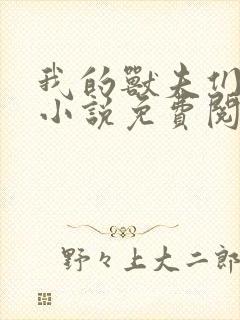 我的獸夫们
小説免費閱
野々上大二郎